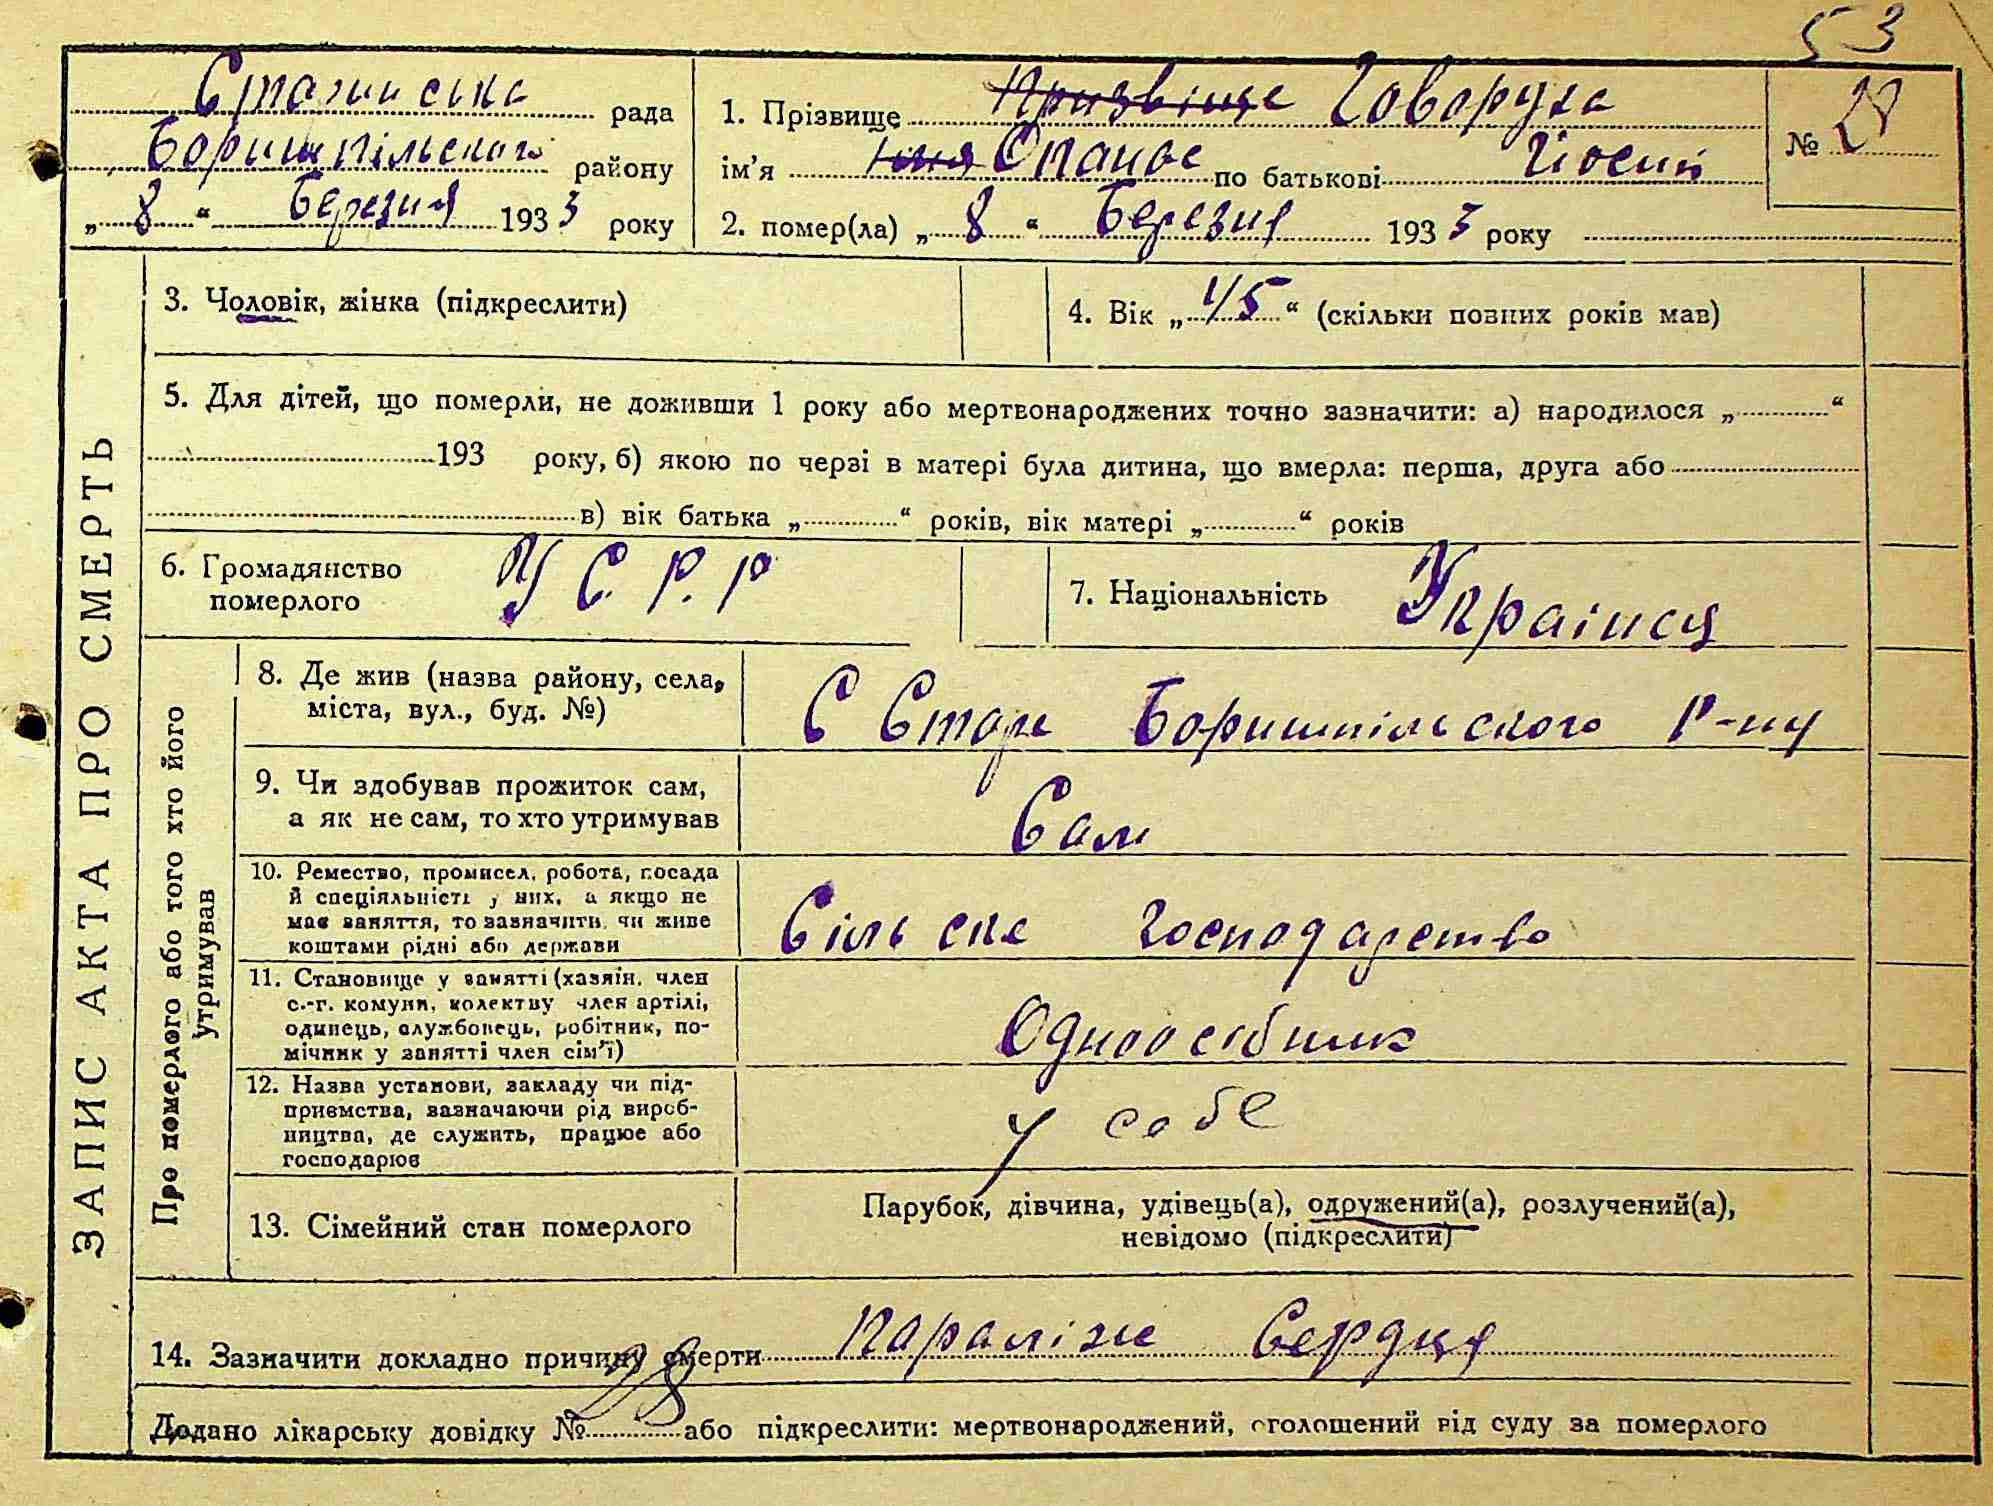 53
Старинська рада
Боришпільского району
„ 8 “ Березня 1933 року
1. Прізвище Призвіще Говоруха
№ 28
ім'я Імя Опанас по батькові Йосип
2. помер(ла) „ 8 “ Березня 1933 року
ЗАПИС АКТА ПРО СМЕРТЬ
3. Чоловік, жінка (підкреслити)
4. Вік „ 45 “ (скільки повних років мав)
5. Для дітей, що померли, не доживши 1 року або мертвонароджених точно зазначити: а) народилося „ “
193 року, б) якою по черзі в матері була дитина, що вмерла: перша, друга або
в) вік батька „ “ років, вік матері „ “ років
6. Громадянство
померлого
У С. Р. Р
7. Національність Украінся
Про померлого або того хто його
утримував
8. Де жив (назва району, села,
міста, вул., буд. №)
С Старе Боришпільського Р-ну
9. Чи здобував прожиток сам,
а як не сам, то хто утримував
Сам
10. Ремество, промисел, робота, посада
й спеціяльність у них, а якщо не
має заняття, то зазначити, чи живе
коштами рідні або держави
Сільске Господарство
11. Становище у занятті (хазяїн, член
с.-г. комуни, колективу член артілі,
одинець, службовець, робітник, по-
мічник у занятті член сім'ї)
Одноосібник
12. Назва установи, закладу чи під-
приємства, зазначаючи рід вироб-
ництва, де служить, працює або
господарює
У себе
13. Сімейний стан померлого
Парубок, дівчина, удівець(а), одружений(а), розлучений(а),
невідомо (підкреслити)
14. Зазначити докладно причину смерти Параліж Сердця
Додано лікарську довідку № 28 або підкреслити: мертвонароджений, оголошений від суду за померлого